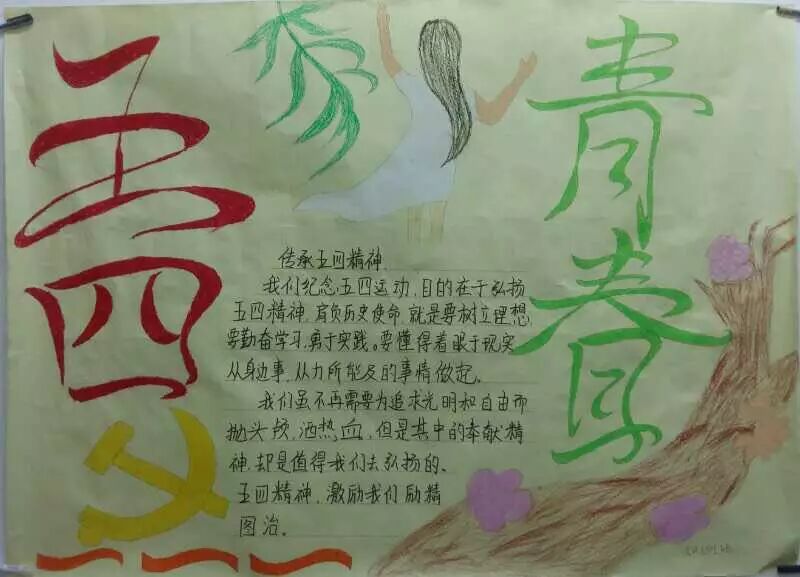 五四
青春
传承五四精神
我们纪念五四运动,目的在于弘扬
五四精神,肩负历史使命,就是要树立理想,
要勤奋学习,勇于实践。要懂得着眼于现实
从身边事,从力所能及的事情做起。
我们虽不再需要为追求光明和自由而
抛头颅,洒热血,但是其中的奉献精
神,却是值得我们去弘扬的。
五四精神,激励我们励精
图治。